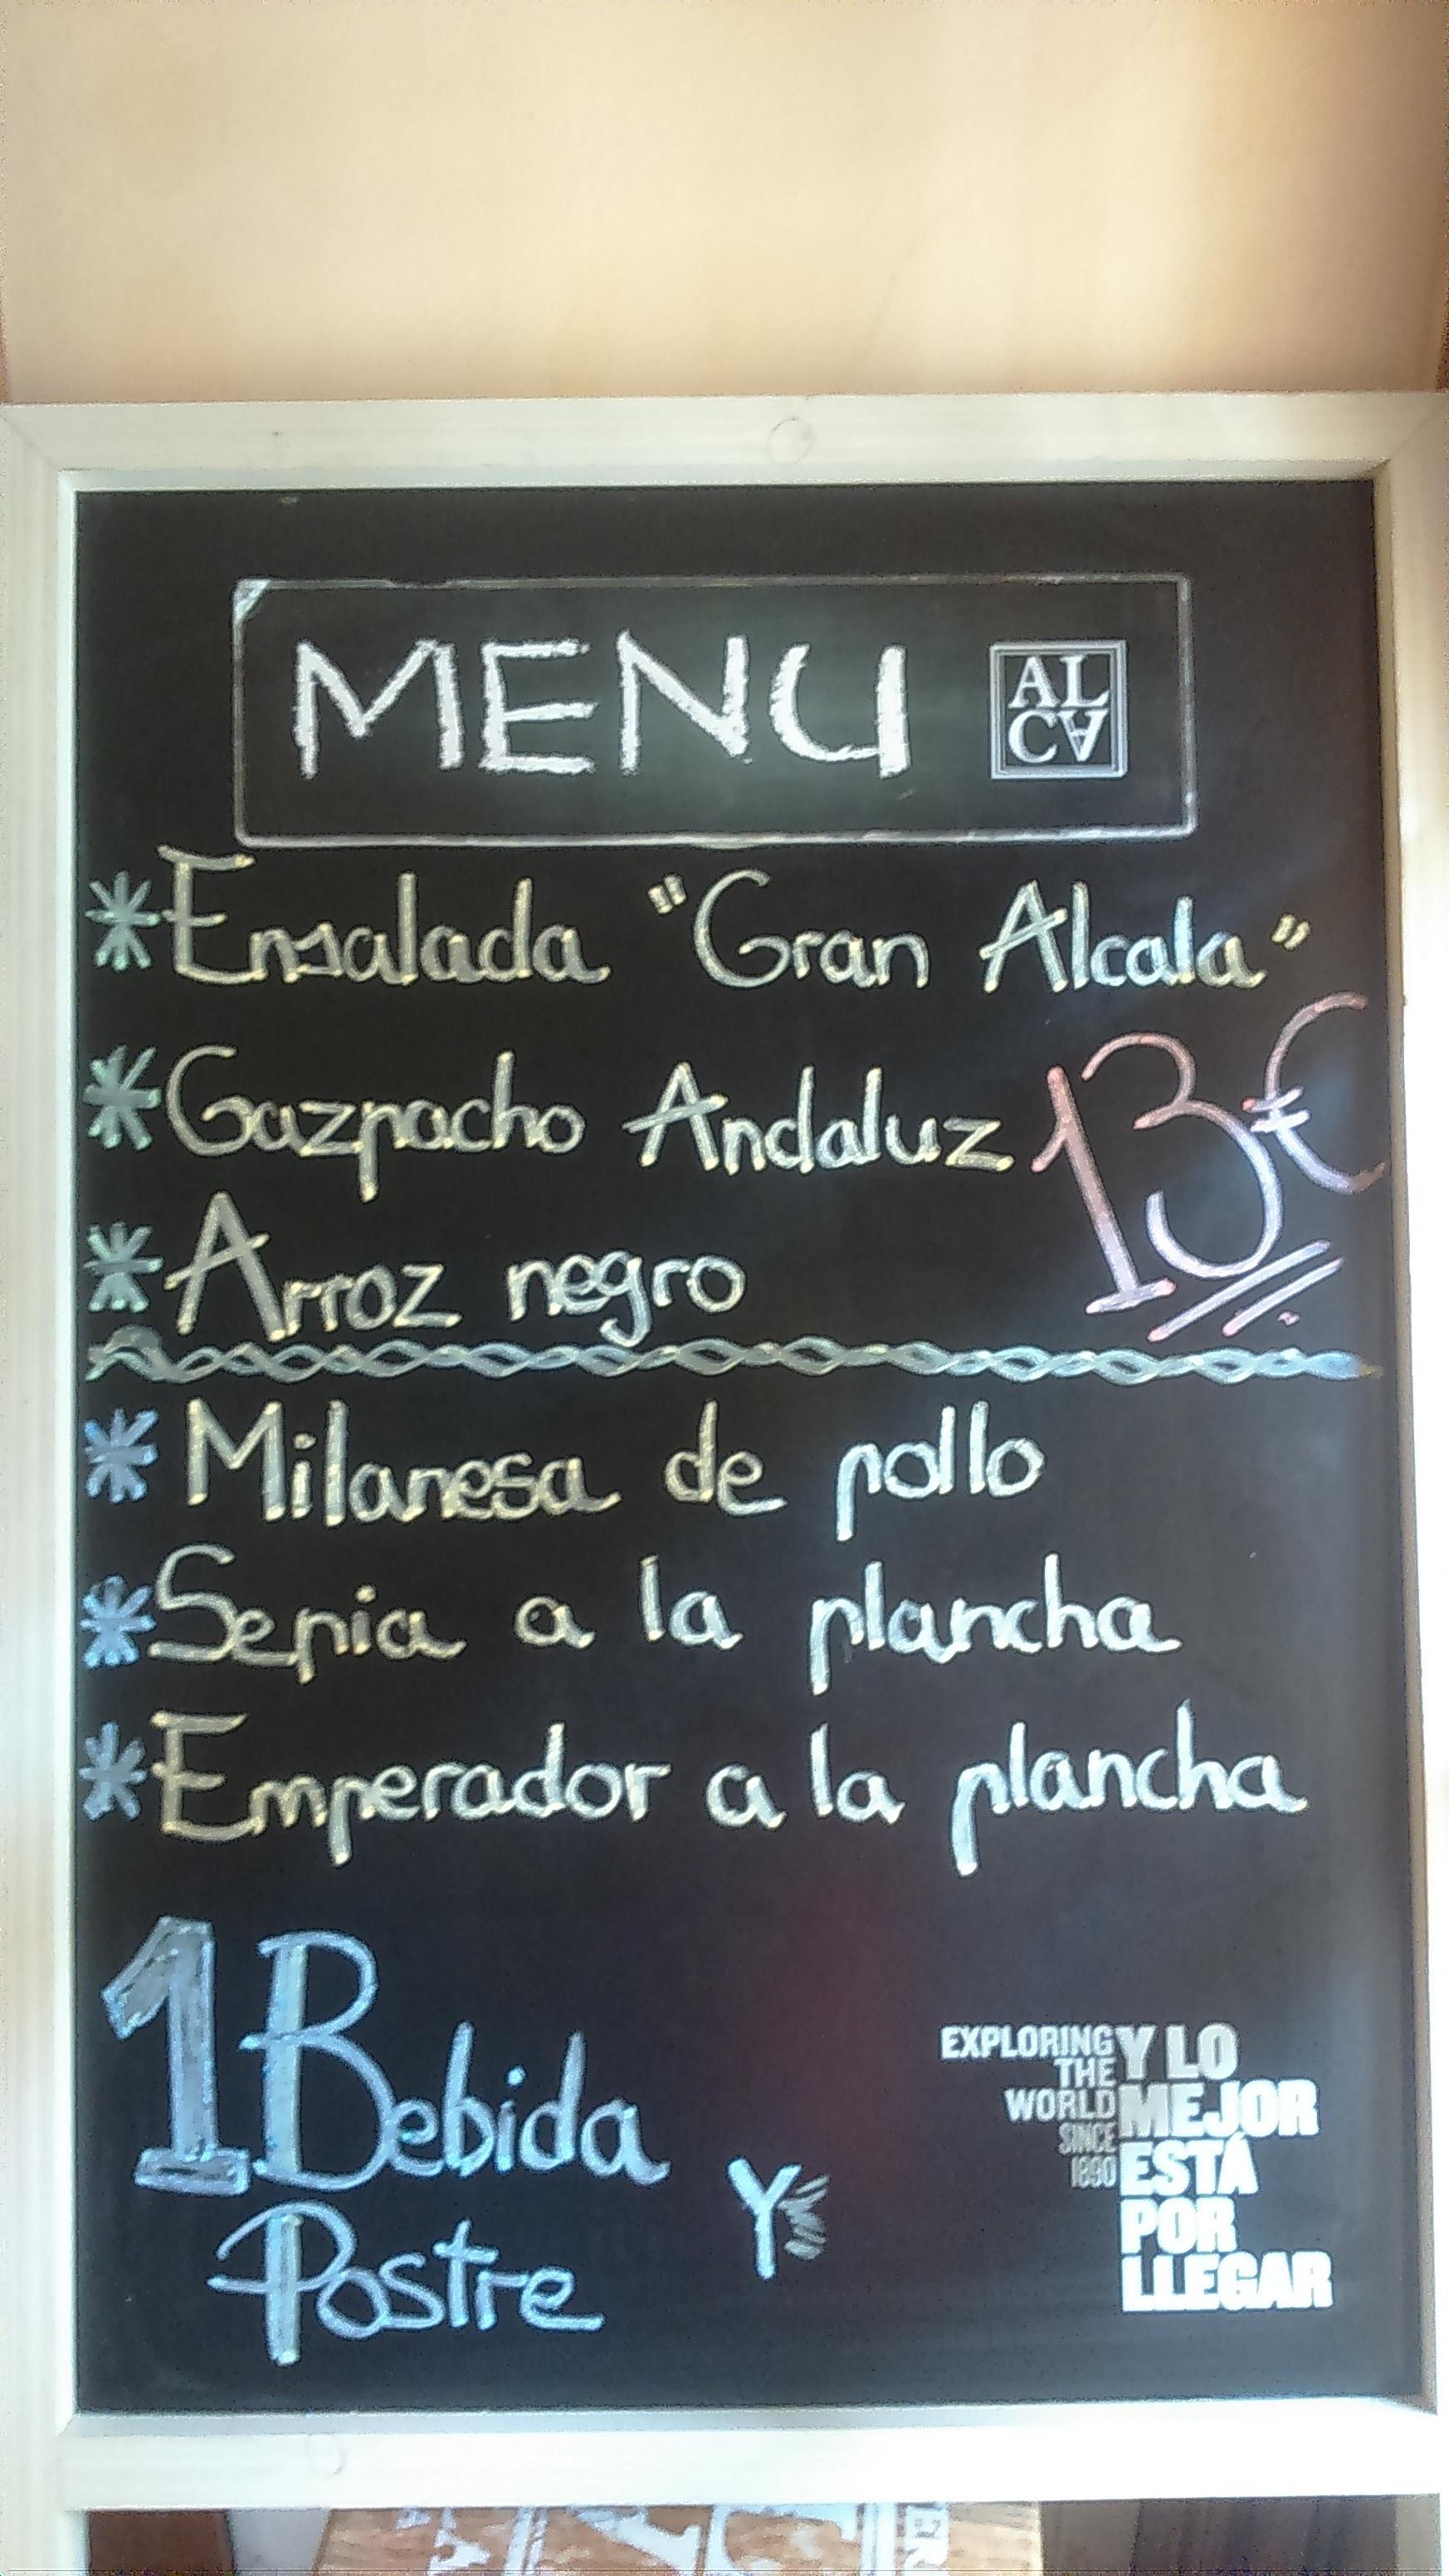 MENU
AL
CA
*Ensalada "Gran Alcala"
*Gazpacho Andaluz
13€
*Arroz negro
*Milanesa de pollo
*Sepia a la plancha
*Emperador a la plancha
1 Bebida
Y
Postre
EXPLORING
THE
WORLD
SINCE
1890
Y LO
MEJOR
ESTÁ
POR
LLEGAR